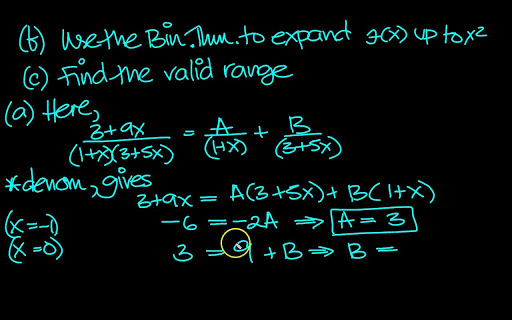 (b) Use the Bin. Thm. to expand f(x) up to x²
(c) Find the valid range
(a) Here,
3+9x/(1+x)(3+5x) = A/(1+x) + B/(3+5x)
*denom, gives
3+9x = A(3+5x) + B(1+x)
(x=-1) -6 = -2A ⇒ A = 3
(x=0) 3 = 9 + B ⇒ B =